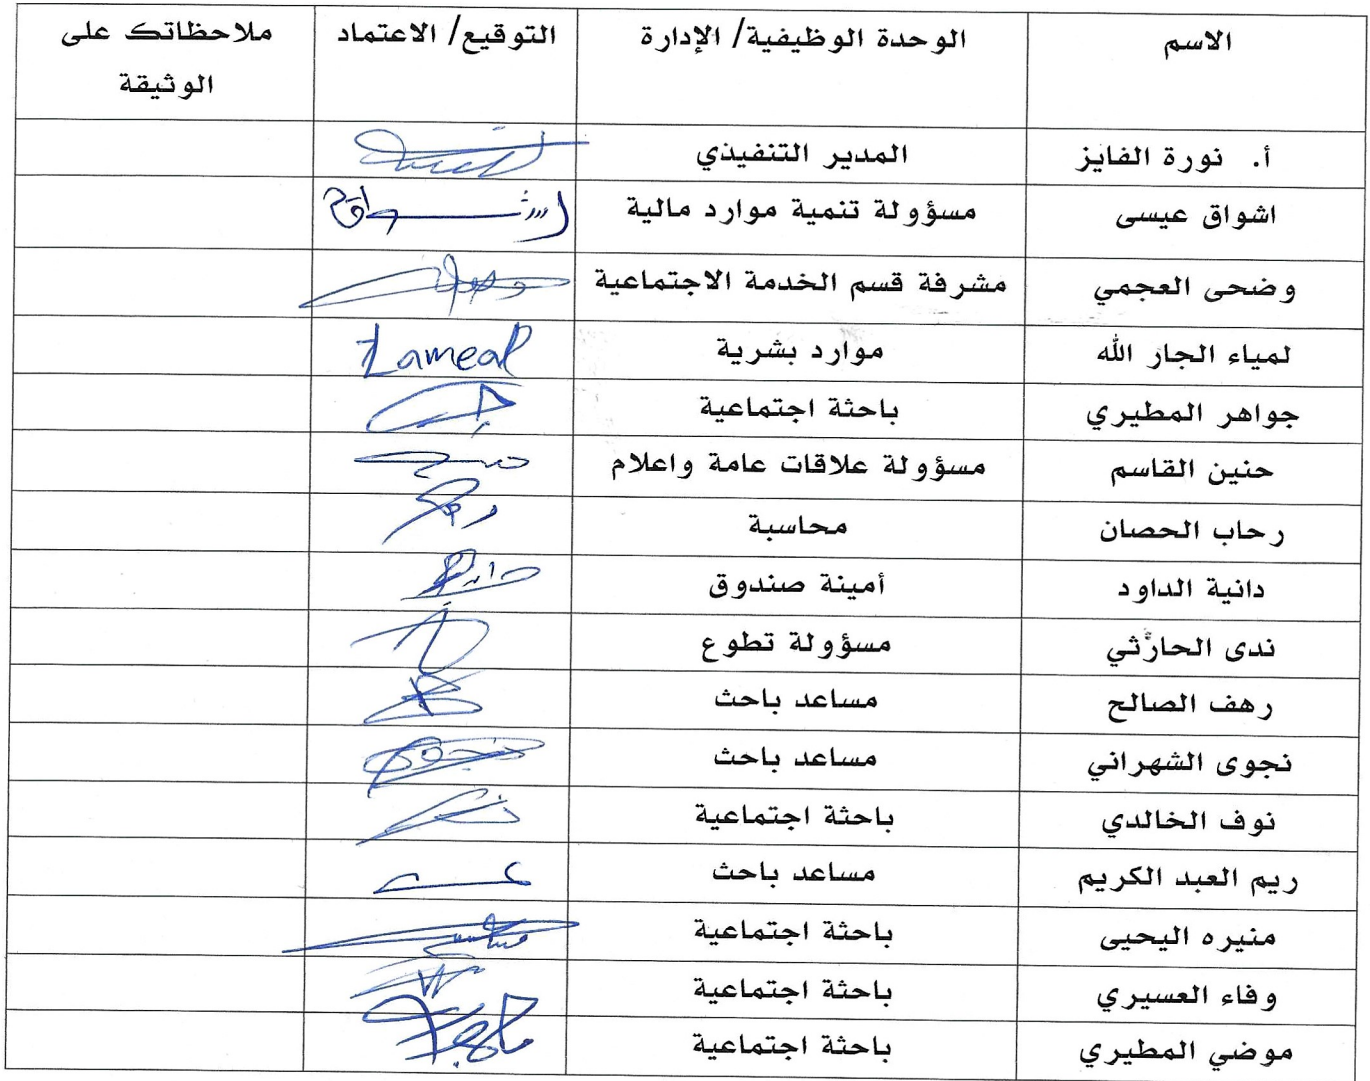 الاسم الوحدة الوظيفية/ الإدارة التوقيع/ الاعتماد ملاحظاتك على
الوثيقة
أ. نورة الفايز المدير التنفيذي
اشواق عيسى مسؤولة تنمية موارد مالية اشواق
وضحى العجمي مشرفة قسم الخدمة الاجتماعية
لمياء الجار الله موارد بشرية Lameal
جواهر المطيري باحثة اجتماعية
حنين القاسم مسؤولة علاقات عامة واعلام
رحاب الحصان محاسبة
دانية الداود أمينة صندوق
ندى الحارثي مسؤولة تطوع
رهف الصالح مساعد باحث
نجوى الشهراني مساعد باحث نجوى
نوف الخالدي باحثة اجتماعية
ريم العبد الكريم مساعد باحث
منيره اليحيى باحثة اجتماعية
وفاء العسيري باحثة اجتماعية
موضي المطيري باحثة اجتماعية